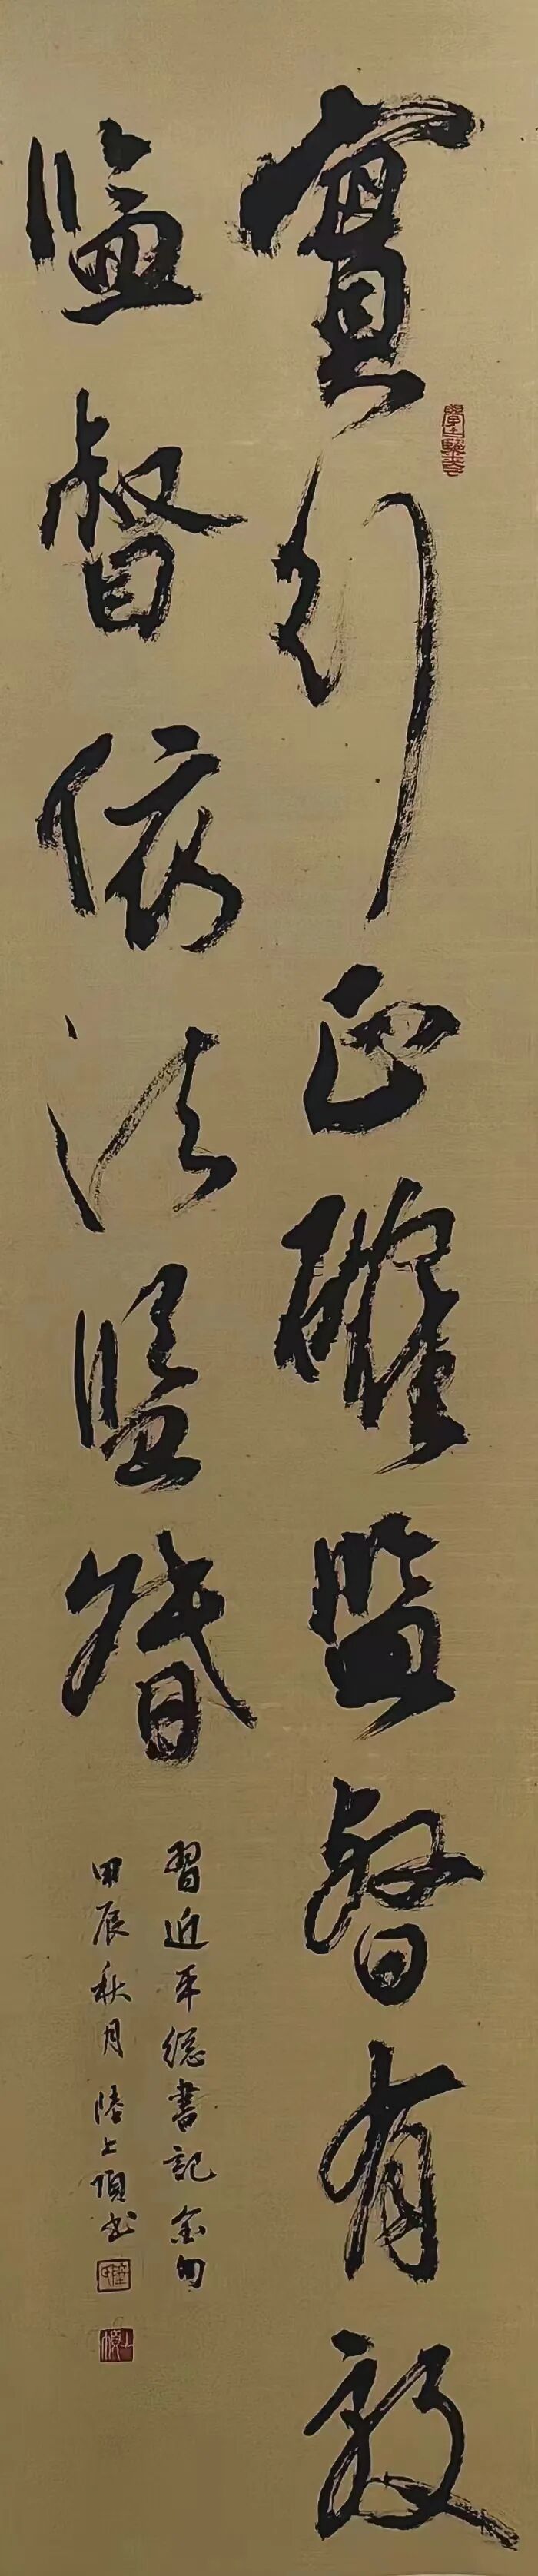 實行正確監督有效
監督依法監督
習近平總書記金句
甲辰秋月 陸上項書